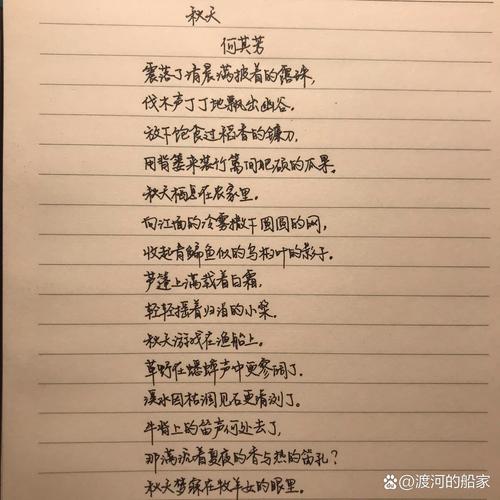 秋天
何其芳
震落了清晨满披着的露珠,
伐木声丁丁地飘出幽谷。
放下饱食过稻香的镰刀,
用背篓来装竹篱间肥硕的瓜果。
秋天栖息在农家里。
向江面的冷雾撒下圆圆的网,
收起青鳊鱼似的乌桕叶的影子。
芦篷上满载着白霜,
轻轻摇着归泊的小桨。
秋天游戏在渔船上。
草野在蟋蟀声中更寥阔了。
溪水因枯涸见石更清冽了。
牛背上的笛声何处去了,
那满流着夏夜的香与热的笛孔?
秋天梦寐在牧羊女的眼里。
@渡河的船家